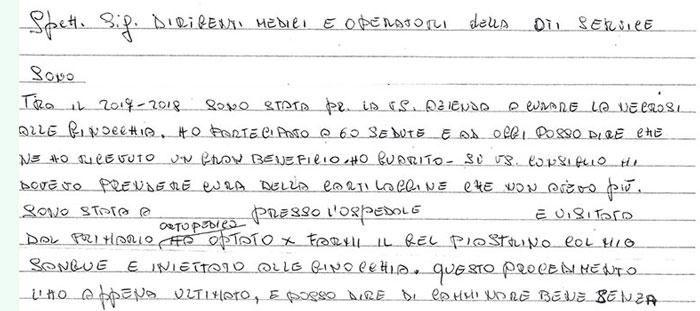 Spett. Sig. DIRIGENTI MEDICI E OPERATORI della OTI SERVICE
SONO
TRA IL 2017-2018 SONO STATA PR. LA VS. AZIENDA A CURARE LA NECROSI
ALLE GINOCCHIA. HO PARTECIPATO A 60 SEDUTE E AD OGGI POSSO DIRE CHE
NE HO RICEVUTO UN GRAN BENEFICIO. HO GUARITO - SU VS. CONSIGLIO MI
DOVEVO PRENDERE CURA DELLA CARTILAGGINE CHE NON AVEVO PIÙ.
SONO STATA A PRESSO L'OSPEDALE E VISITATA
DAL PRIMARIO ORTOPEDICO HA OPTATO X FARMI IL GEL PIASTRINO COL MIO
SANGUE E INIETTATO ALLE GINOCCHIA. QUESTO PROCEDIMENTO
L'HO APPENA ULTIMATO, E POSSO DIRE DI CAMMINARE BENE SENZA